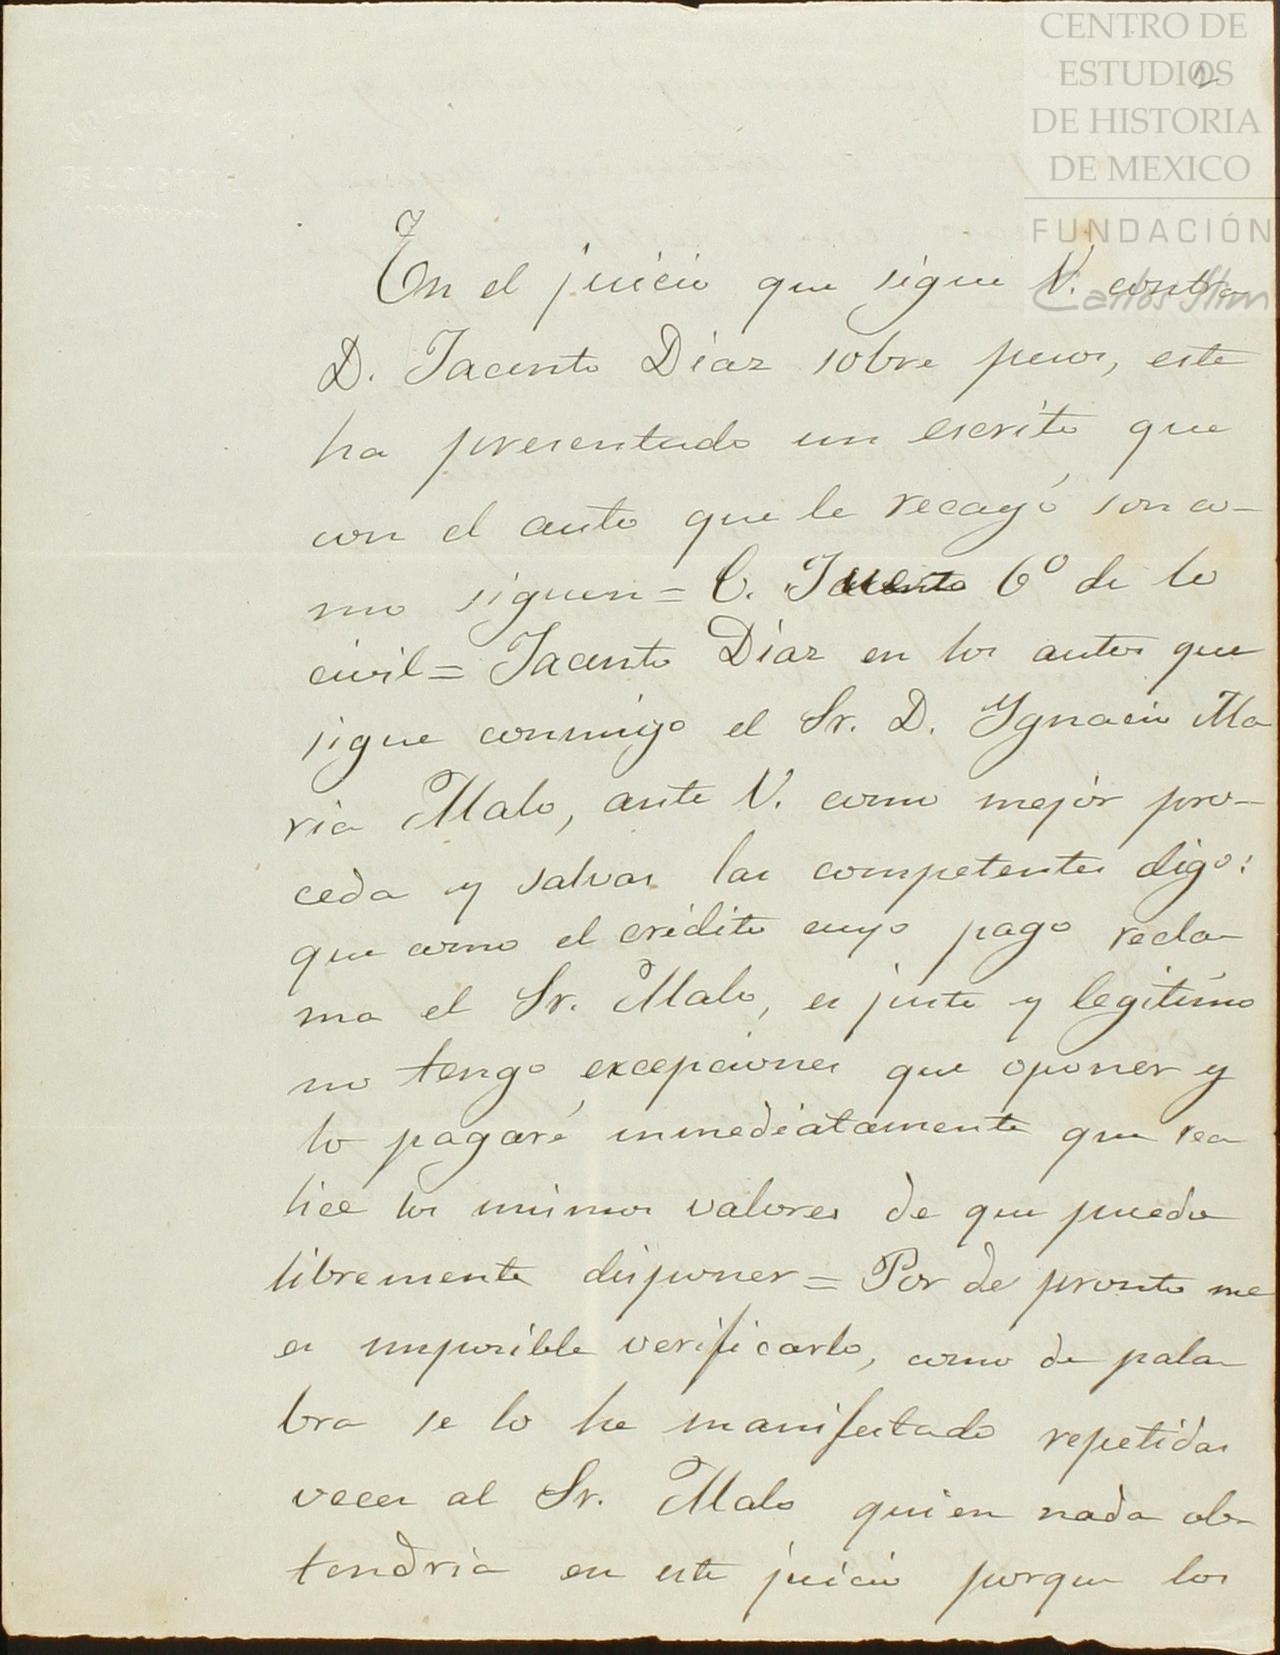 CENTRO DE
ESTUDIOS
DE HISTORIA
DE MEXICO
FUNDACIÓN
Carlos Slim
En el juicio que sigue V. contra
D. Jacinto Díaz sobre pesos, este
ha presentado un escrito que
con el auto que le recayó son co-
mo siguen = C. Juez 6º de lo
civil = Jacinto Díaz en los autos que
sigue conmigo el Sr. D. Ygnacio Ma
ria Malo, ante V. como mejór pro-
ceda y salvas las competentes digo:
que como el crédito cuyo pago recla-
ma el Sr. Malo, es justo y legítimo
no tengo excepciones que oponer y
lo pagaré inmediatamente que rea
lice los mismos valores de que puedo
libremente disponer = Por de pronto me
es imposible verificarlo, como de pala-
bra se lo he manifestado repetidas
veces al Sr. Malo quien nada ob-
tendria en este juicio porque los